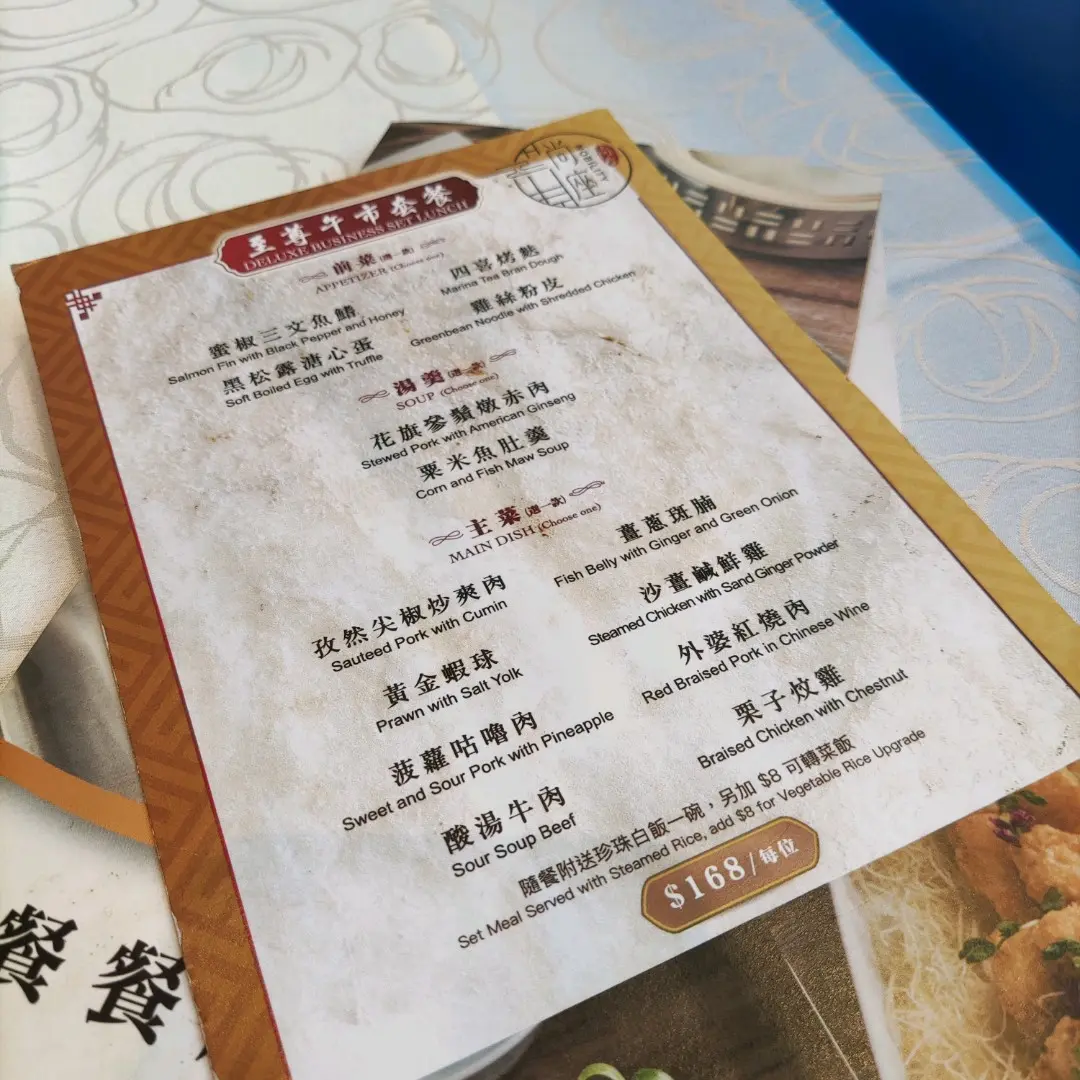 至尊午市套餐
DELUXE BUSINESS SET LUNCH
前菜(選一款)
APPETIZER (Choose one)
蜜椒三文魚鰭
Salmon Fin with Black Pepper and Honey
四喜烤麩
Marina Tea Bran Dough
黑松露溏心蛋
Soft Boiled Egg with Truffle
雞絲粉皮
Greenbean Noodle with Shredded Chicken
湯羹(選一款)
SOUP (Choose one)
花旗參鬚燉赤肉
Stewed Pork with American Ginseng
粟米魚肚羹
Corn and Fish Maw Soup
主菜(選一款)
MAIN DISH (Choose one)
孜然尖椒炒爽肉
Sauteed Pork with Cumin
薑蔥斑腩
Fish Belly with Ginger and Green Onion
黃金蝦球
Prawn with Salt Yolk
沙薑鹹鮮雞
Steamed Chicken with Sand Ginger Powder
菠蘿咕嚕肉
Sweet and Sour Pork with Pineapple
外婆紅燒肉
Red Braised Pork in Chinese Wine
酸湯牛肉
Sour Soup Beef
栗子炆雞
Braised Chicken with Chestnut
隨餐附送珍珠白飯一碗，另加 $8 可轉菜飯
Set Meal Served with Steamed Rice, add $8 for Vegetable Rice Upgrade
$168/每位
餐 餐